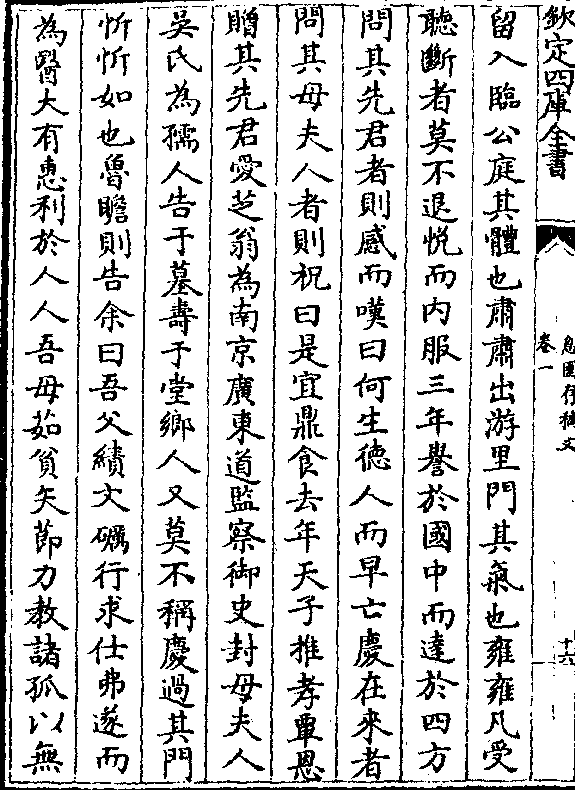 欽定四庫全書
卷一
十六
留入臨公庭其體也肅肅出游里門其氣也雍雍凡受
聽斷者莫不退悅而内服三年譽於國中而達於四方
問其先君者則感而嘆曰何生徳人而早亡慶在來者
問其母夫人者則祝曰是宜鼎食去年天子推孝覃恩
贈其先君愛芝翁為南京廣東道監察御史封母夫人
吳氏為孺人告于墓壽于堂鄉人又莫不稱慶過其門
忻忻如也魯瞻則告余曰吾父績文礪行求仕弗遂而
為醫大有惠利於人人吾母茹貧矢節力教諸孤以無